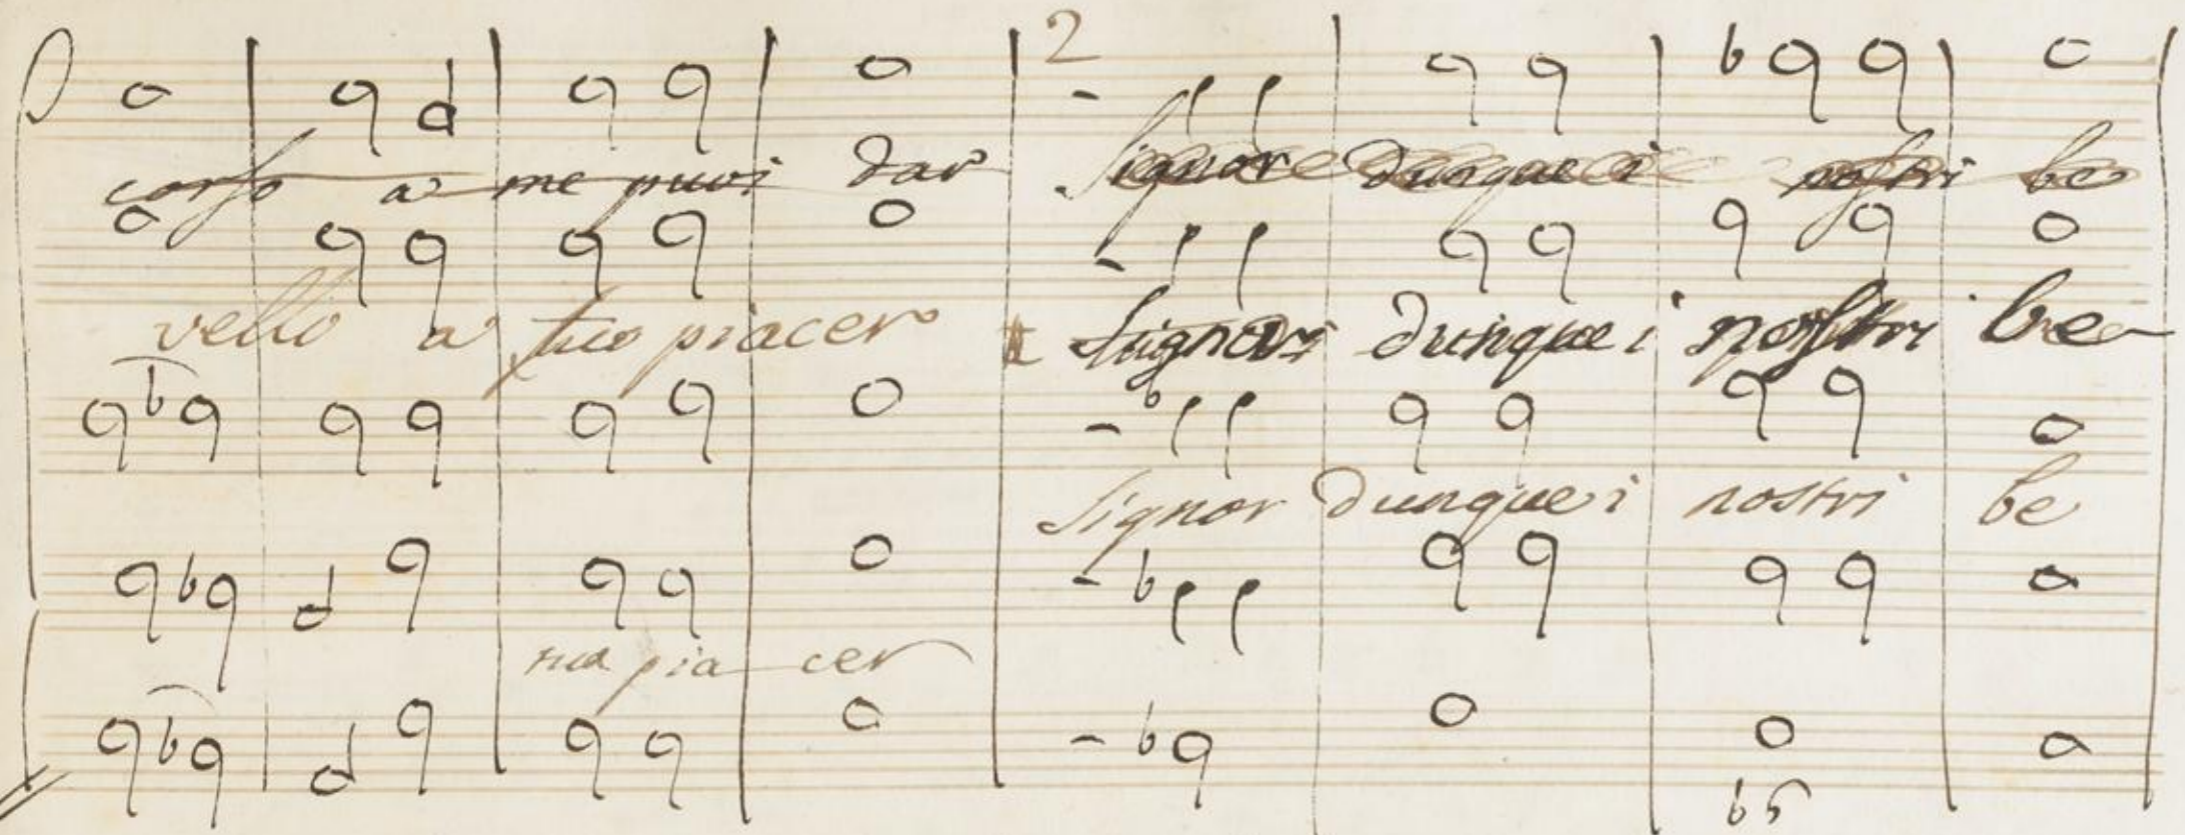 2
corso a me puoi dar Signor dunque i nostri be
vello a tuo piacer Signor dunque i nostri be
Signor dunque i nostri be
tuo piacer
b5